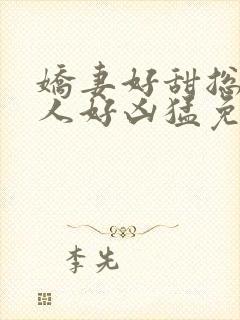 嬌妻好甜
人好凶猛免
李先